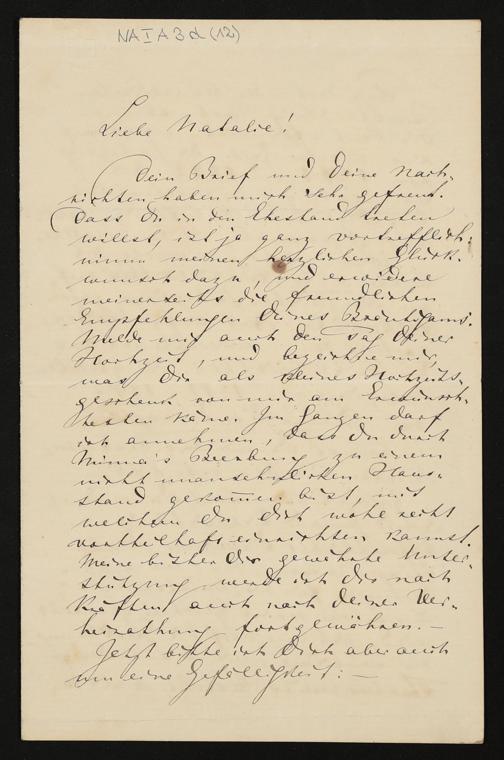 NA I A 3 d (12)
Liebe Natalie!
Dein Brief und Deine Nach-
richten haben mich sehr gefreut.
Dass Du in den Ehestand treten
willst, ist ja ganz vortrefflich:
nimm meinen herzlichen Glück-
wunsch dazu, und erwidere
meinerseits die freundlichen
Empfehlungen Deines Bräutigams.
Melde mir auch den Tag Deiner
Hochzeit, und bezeichne mir,
was Dir als kleines Hochzeits-
geschenk von mir am Erwünsch-
testen käme. Im Ganzen darf
ich annehmen, dass Du durch
Minna's Beerbung zu einem
nicht unansehnlichen Haus-
stand gekommen bist, mit
welchem Du Dich wohl recht
vortheilhaft einrichten kannst.
Meine bisher Dir gewährte Unter-
stützung werde ich Dir nach
Kräften auch nach Deiner Ver-
heirathung fortgewähren. —
Jetzt bitte ich Dich aber auch
um eine Gefälligkeit: —